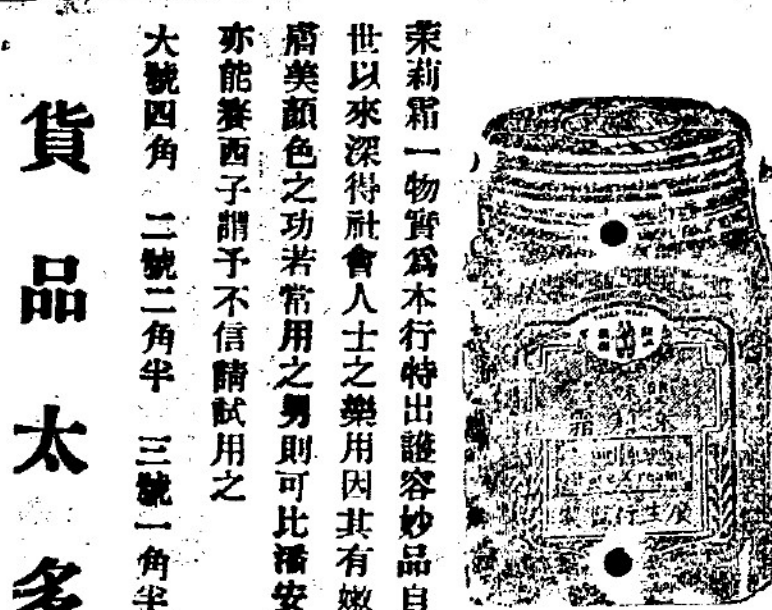 茉莉霜一物實爲本行特出護容妙品自
世以來深得社會人士之樂用因其有嫩
膚美顏色之功若常用之男則可比潘安
亦能賽西子謂予不信請試用之
大號四角 二號二角半 三號一角半
貨品太多
霜
行生廣